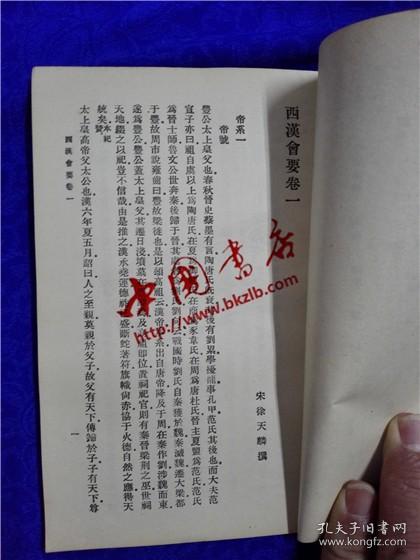 西漢會要卷一
宋徐天麟撰
帝系一
帝號
豐公太上皇父也春秋晉史蔡墨有言陶唐氏旣衰其後有劉累學擾龍事孔甲范氏其後也而大夫范
宣子亦曰祖自虞以上爲陶唐氏在夏爲御龍氏在商爲豕韋氏在周爲唐杜氏晉主夏盟爲范氏范氏
爲晉士師魯文公世奔秦後歸于晉其處者爲劉氏劉向云戰國時劉氏自秦獲於魏秦滅魏遷大梁都
于豐故周市說雍齒曰豐故梁徙也是以頌高祖云漢帝本系出自唐帝降及于周在秦作劉涉魏而東
遂爲豐公豐公蓋太上皇父其遷日淺墳墓在豐鮮焉及高祖即位置祠祀官則有秦晉梁荆之巫世祠
天地綴之以祀豈不信哉由是推之漢承堯運德祚已盛斷蛇著符旗幟尚赤協于火德自然之應得天
統矣本紀贊
太上皇高帝父太公也漢六年夏五月詔曰人之至親莫親於父子故父有天下傳歸於子子有天下尊
西漢會要卷一
一
中国书店
www.bkzlb.com
孔夫子旧书网
www.kongfz.com